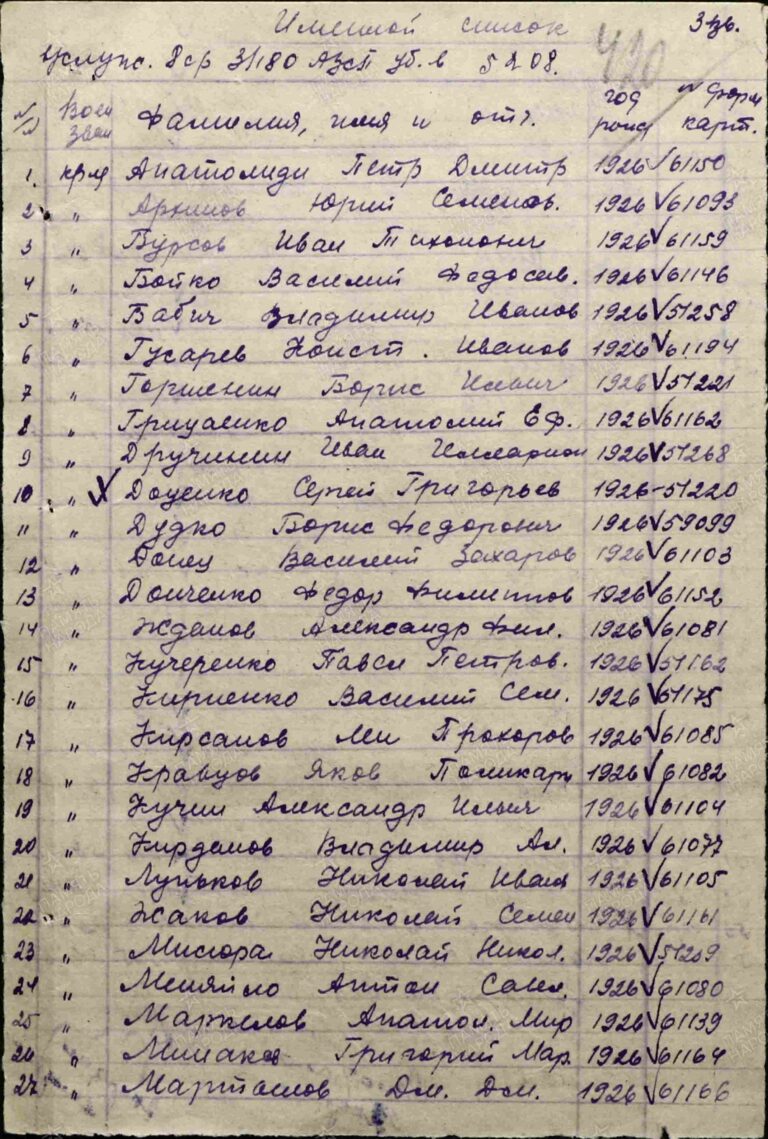 Именной список 3 зв.
420
8 ср 31180 АзСП уб. в 5208.
Воен. зван фамилия, имя и отч. год рожд № форм карт.
1. кр-ц Анатолиди Петр Дмитр 1926 √ 61150
2 " Архипов Юрий Семенов. 1926 √ 61093
3 " Бурсов Иван Тихонович 1926 √ 61159
4 " Бойко Василий Федосеев. 1926 √ 61146
5 " Бабич Владимир Иванов 1926 √ 51258
6 " Гусарев Конст. Иванов 1926 √ 61194
7 " Горшенин Борис Ильич 1926 √ 51221
8 " Гриценко Анатолий Еф. 1926 √ 61162
9 " Дручинин Иван Илларион 1926 √ 51268
10 " Доценко Сергей Григорьев 1926 - 51220
11 " Дудко Борис Федорович 1926 √ 59099
12 " Донец Василий Захаров 1926 √ 61103
13 " Донченко Федор Филиппов 1926 √ 61152
14 " Жданов Александр Фил. 1926 √ 61081
15 " Кучеренко Павел Петров. 1926 √ 51162
16 " Кириенко Василий Сем. 1926 √ 51175
17 " Кирсанов Прохоров 1926 √ 61085
18 " Кравцов Яков Поликарп 1926 √ 61082
19 " Кучин Александр Ильич 1926 √ 61104
20 " Кирданов Владимир Ал. 1926 √ 61077
21 " Луньков Николай Иван 1926 √ 61105
22 " Жаков Николай Семен 1926 √ 61161
23 " Мисюра Николай Никол. 1926 √ 51209
24 " Меняйло Антон Савел. 1926 √ 61080
25 " Маркелов Анатол. Мир 1926 √ 61139
26 " Григорий Мар. 1926 √ 61164
27 " Марташов Дм. Дм. 1926 √ 61166